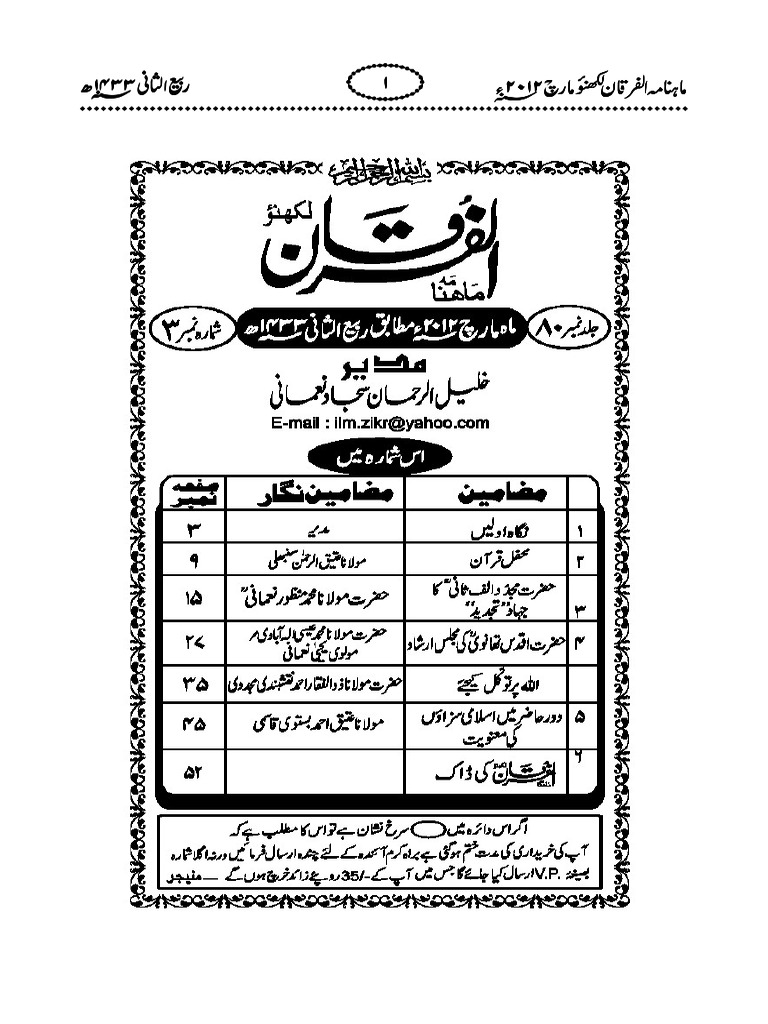 ماہنامہ الفرقان لکھنؤ مارچ ۲۰۱۲ء
۱
ربیع الثانی ۱۴۳۳ھ
بسم اللہ الرحمن الرحیم
الفرقان لکھنؤ
ماہنامہ
جلد نمبر ۸۰
ماہ مارچ ۲۰۱۲ء مطابق ربیع الثانی ۱۴۳۳ھ
شمارہ نمبر ۳
مدیر
خلیل الرحمان سجاد نعمانی
E-mail : ilm.zikr@yahoo.com
اس شمارہ میں
مضامین مضامین نگار صفحہ نمبر
۱ نگاہ اولیں مدیر ۳
۲ محفل قرآن مولانا عتیق الرحمٰن سنبھلی ۹
۳ حضرت مجدد الف ثانیؒ کا جہاد ”تجدید“ حضرت مولانا محمد منظور نعمانیؒ ۱۵
۴ حضرت اقدس تھانویؒ کی مجلس ارشاد حضرت مولانا محمد عیسیٰ الہ آبادیؒ، مولوی یحییٰ نعمانی ۲۷
اللہ پر توکل کیجئے حضرت مولانا ذوالفقار احمد نقشبندی مجددی ۳۵
۵ دور حاضر میں اسلامی سزاؤں کی معنویت مولانا عتیق احمد بستوی قاسمی ۴۵
۶ الفرقان کی ڈاک ۵۲
اگر اس دائرہ میں سرخ نشان ہے تو اس کا مطلب ہے کہ
آپ کی خریداری کی مدت ختم ہو گئی ہے براہ کرم آئندہ کے لئے چندہ ارسال فرمائیں ورنہ اگلا شمارہ
بصیغۂ V.P. ارسال کیا جائے گا جس میں آپ کے -/35 روپئے زائد خرچ ہوں گے — منیجر